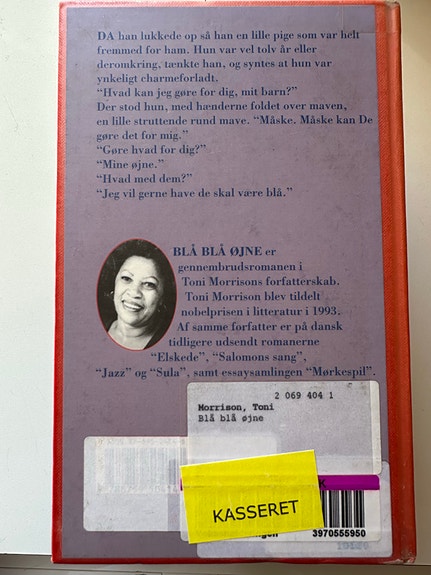 DA han lukkede op så han en lille pige som var helt
fremmed for ham. Hun var vel tolv år eller
deromkring, tænkte han, og syntes at hun var
ynkeligt charmeforladt.
“Hvad kan jeg gøre for dig, mit barn?”
Der stod hun, med hænderne foldet over maven,
en lille struttende rund mave. “Måske. Måske kan De
gøre det for mig.”
“Gøre hvad for dig?”
“Mine øjne.”
“Hvad med dem?”
“Jeg vil gerne have de skal være blå.”
BLÅ BLÅ ØJNE er
gennembrudsromanen i
Toni Morrisons forfatterskab.
Toni Morrison blev tildelt
nobelprisen i litteratur i 1993.
Af samme forfatter er på dansk
tidligere udsendt romanerne
“Elskede”, “Salomons sang”,
“Jazz” og “Sula”, samt essaysamlingen “Mørkespil”.
2 069 404 1
Morrison, Toni
Blå blå øjne
KASSERET
3970555950